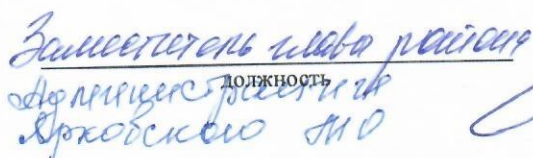 Заместитель глава района
должность
Администрация
Ярковского МО